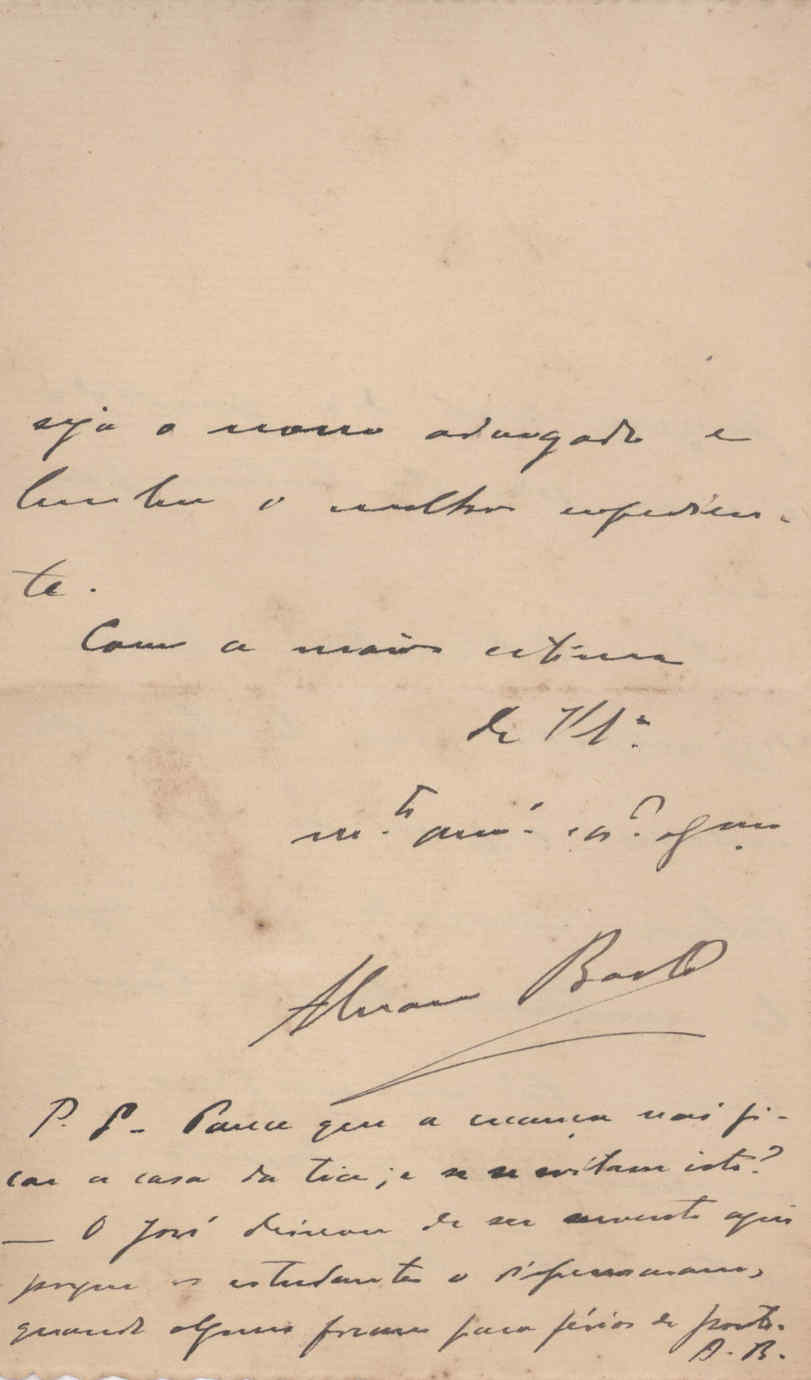 seja o nosso advogado e
lembre o melhor expedien-
te.
Com a maior estima
de V. S.ª
m.to am.º e obg.mo
Alvaro Basto
P. S. Parece que a creança vai fi-
car a casa da tia; e se evitam isto?
— O José deixou de ser servente aqui
porque os estudantes o dispensaram,
quando alguns foram para férias de ponto.
A. B.